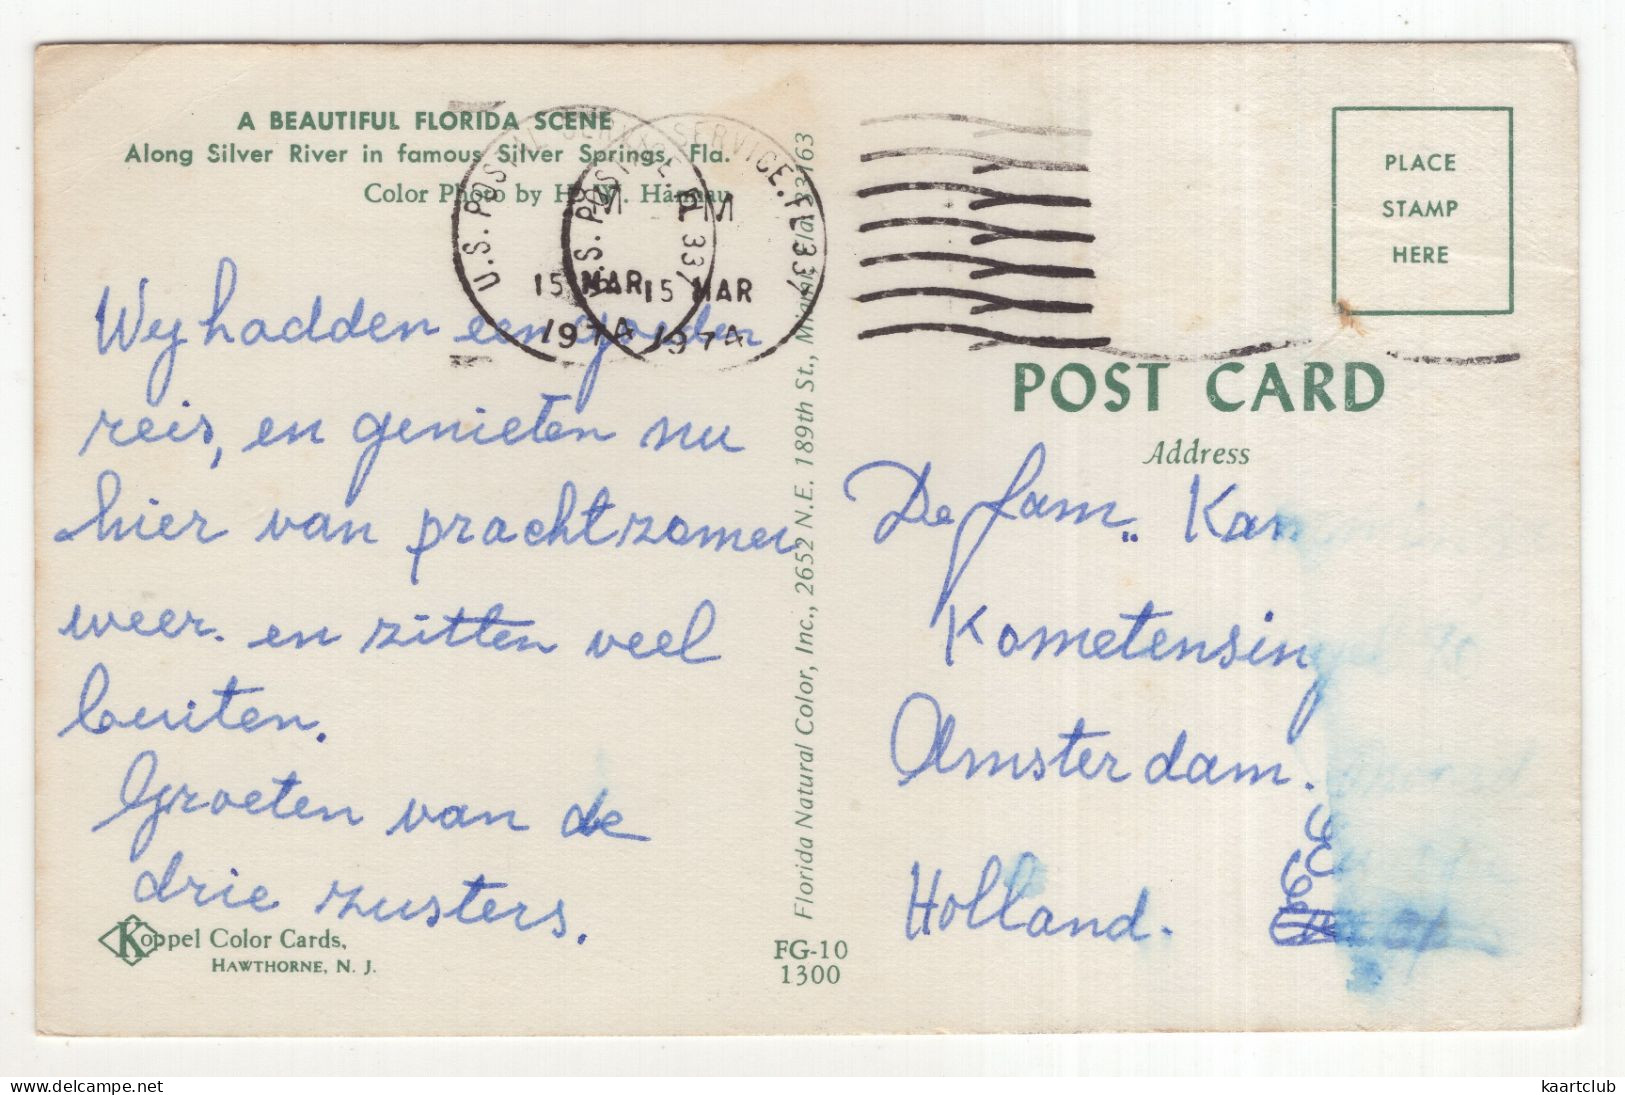 A BEAUTIFUL FLORIDA SCENE
Along Silver River in famous Silver Springs, Fla.
Color Photo by H. W. Hannau
U.S. POSTAL SERVICE, FL 337
PM
15 MAR
1974
U.S. POSTAL SERVICE, FL 337
PM
15 MAR
1974
Wy hadden een goeden
reis, en genieten nu
hier van prachtzomer
weer. en zitten veel
buiten.
Groeten van de
drie zusters.
Koppel Color Cards,
HAWTHORNE, N. J.
Florida Natural Color, Inc., 2652 N.E. 189th St., Miami, Fla. 33163
FG-10
1300
PLACE
STAMP
HERE
POST CARD
Address
De fam. Kam
Kometensingel
Amsterdam.
Holland.
kaartclub
© delcampe.net